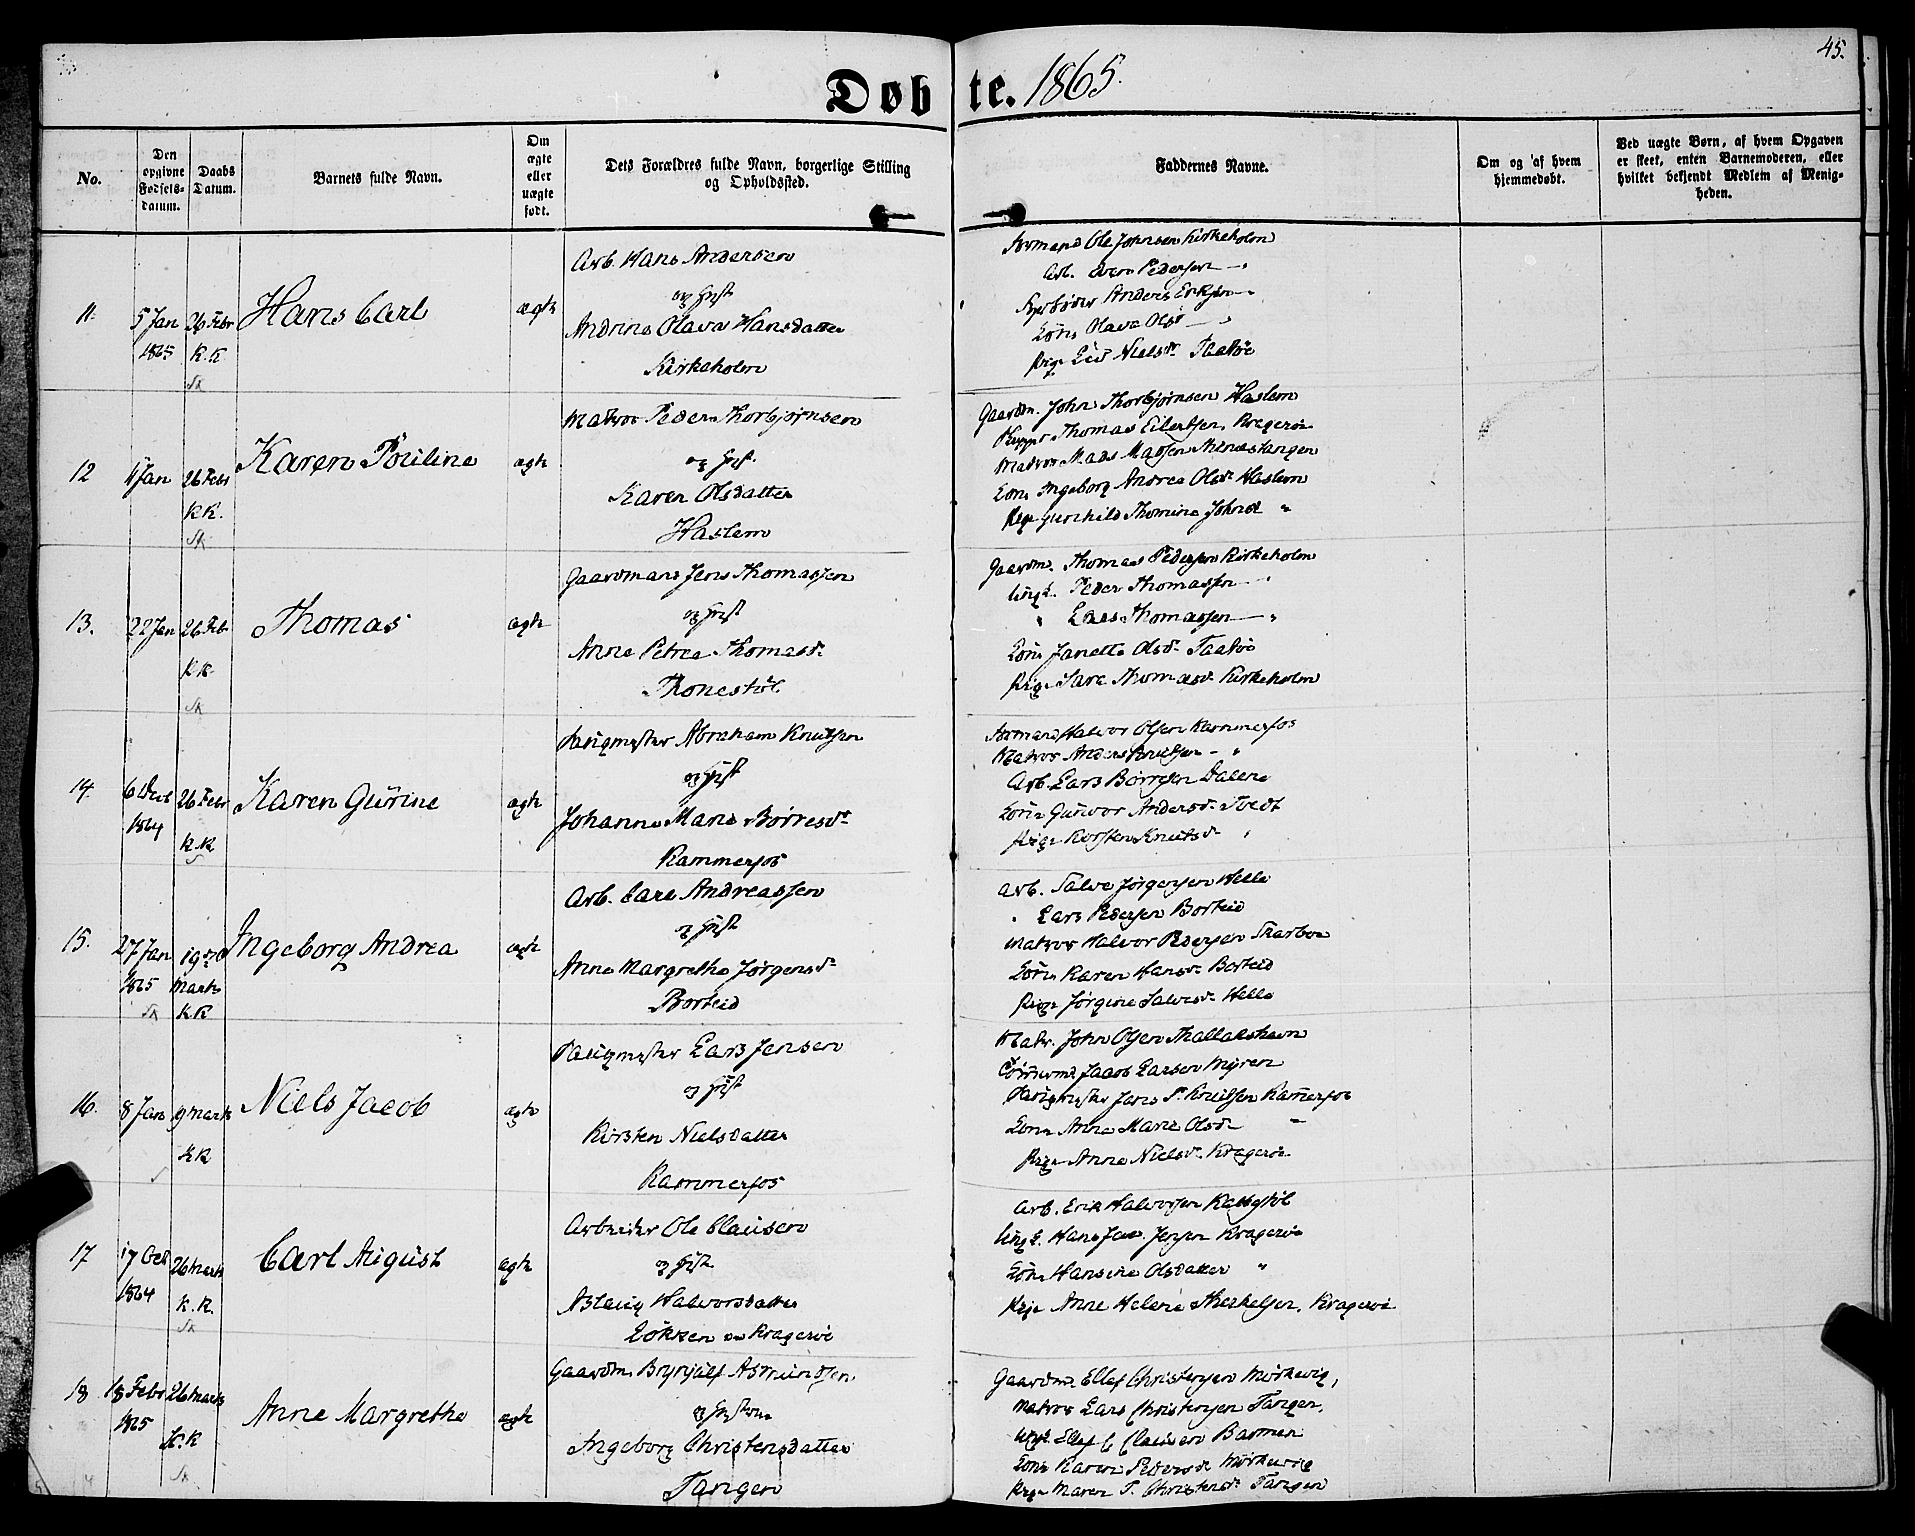 45.
Døbte. 1865.
No.
Den opgivne Fødsels-datum.
Daabs Datum.
Barnets fulde Navn.
Om ægte eller uægte født.
Dets Forældres fulde Navn, borgerlige Stilling og Opholdssted.
Faddernes Navne.
Om og af hvem hjemmedøbt.
Ved uægte Børn, af hvem Opgaven er skeet, enten Barnemoderen, eller hvilket bekjendt Medlem af Menigheden.
11.
5 Jan 1865
26 Febr K.K.
Hans Carl
ægte
Arb. Hans Andersen
og Hust
Andrine Olava Hansdatter
Kirkeholm
Ole Johnsen Kirkeholm
Arb. Pedersen
Anders Eriksen
Kone Olava Olsd
Pige Nielsd Taatøe
12
11 Jan
26 Febr K.K.
Karen Pouline
ægte
Matros Peder Thorbjørnsen
og Hust.
Karen Olsdatter
Haslem
Gaardm. John Thorbjørnsen Haslem
Thomas Eilertsen, Kragerøe
Matros Mads Madsen
Kone Ingeborg Andrea Olsd. Haslem
Pige Gunhild Thomine Johnsd "
13.
22 Jan
26 Feb K.K.
Thomas
ægte
Gaardmand Jens Thomassen
og Hust
Anne Petrea Thomasd.
Gaardm. Thomas Pedersen Kirkeholm
Ungk. Peder Thomassen
" Lars Thomassen "
Kone Janette Olsd. Taatøe
Pige Sara Thomasd. Kirkeholm
14.
6 Decb 1864
26 Febr K.K
Karen Gurine
ægte
Abraham Knutsen
og Hust
Johanne Marie Børresd.
Kammerfos
Halvor Olsen Kammerfos
Matros Anders Knutsen "
Arb. Lars Børresen Dalene
Kone Gunvor Andersd. Tvedt
Pige Kirsten Knutsd. "
15.
27 Jan 1865
19de Marts K.K
Ingeborg Andrea
ægte
Arb. Carl Andreassen
og Hust
Anne Margrethe Jørgensd.
Borteid
Arb. Salve Jørgensen Helle
" Lars Pedersen Borteid
Matros Halvor Pedersen
Kone Karen Hansd. Borteid
Pige Jørgine Salvesd. Helle
16.
8 Jan
19 Marts K.K
Niels Jacob
ægte
Lars Jensen
og Hust
Kirsten Nielsdatter
Kammerfos
Matr. John Olsen
Jacob Larsen Myren
Jens P. Knudsen Kammerfos
Kone Anne Marie Olsd. "
Pige Anne Nielsd. Kragerøe
17
17 Oct 1864
26 Marts K.K.
Carl August
ægte
Arbeider Ole Clausen
og Hust.
Aslaug Halvorsdatter
Kragerøe
Arb. Erik Halvorsen
Ungk. Hans Jac. Jensen Kragerøe
Kone Hansine Olsdatter "
Pige Anne Helene Therkelsen, Kragerøe
18
18 Febr 1865
26 Marts K.K
Anne Margrethe
ægte
Gaardm. Brynjulf Asmundsen
og Hustrue
Ingeborg Christensdatter
Tangen
Gaardm. Ellef Christensen Mørkevig,
Matros Lars Christensen Tangen,
Ungk. Ellef C Clausen Barmen
Kone Karen Pedersd. Mørkevig
Pige Maren T. Christensd. Tangen